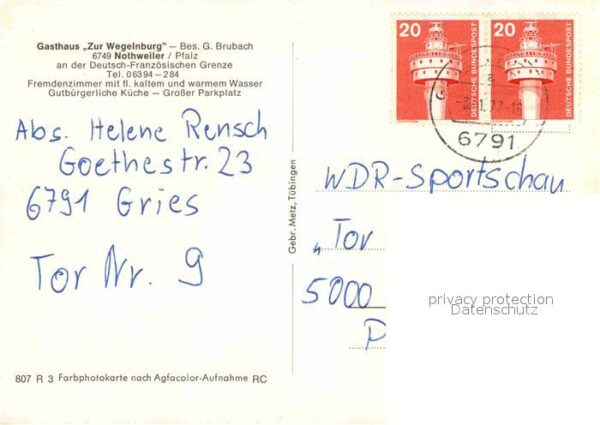 Gasthaus „Zur Wegelnburg" – Bes. G. Brubach
6749 Nothweiler / Pfalz
an der Deutsch-Französischen Grenze
Tel. 06394 – 284
Fremdenzimmer mit fl. kaltem und warmem Wasser
Gutbürgerliche Küche – Großer Parkplatz
Abs. Helene Rensch
Goethestr. 23
6791 Gries
Tor Nr. 9
807 R 3 Farbphotokarte nach Agfacolor-Aufnahme RC
Gebr. Metz, Tübingen
20
DEUTSCHE BUNDESPOST
20
DEUTSCHE BUNDESPOST
6791
WDR-Sportschau
„Tor
5000
privacy protection
Datenschutz